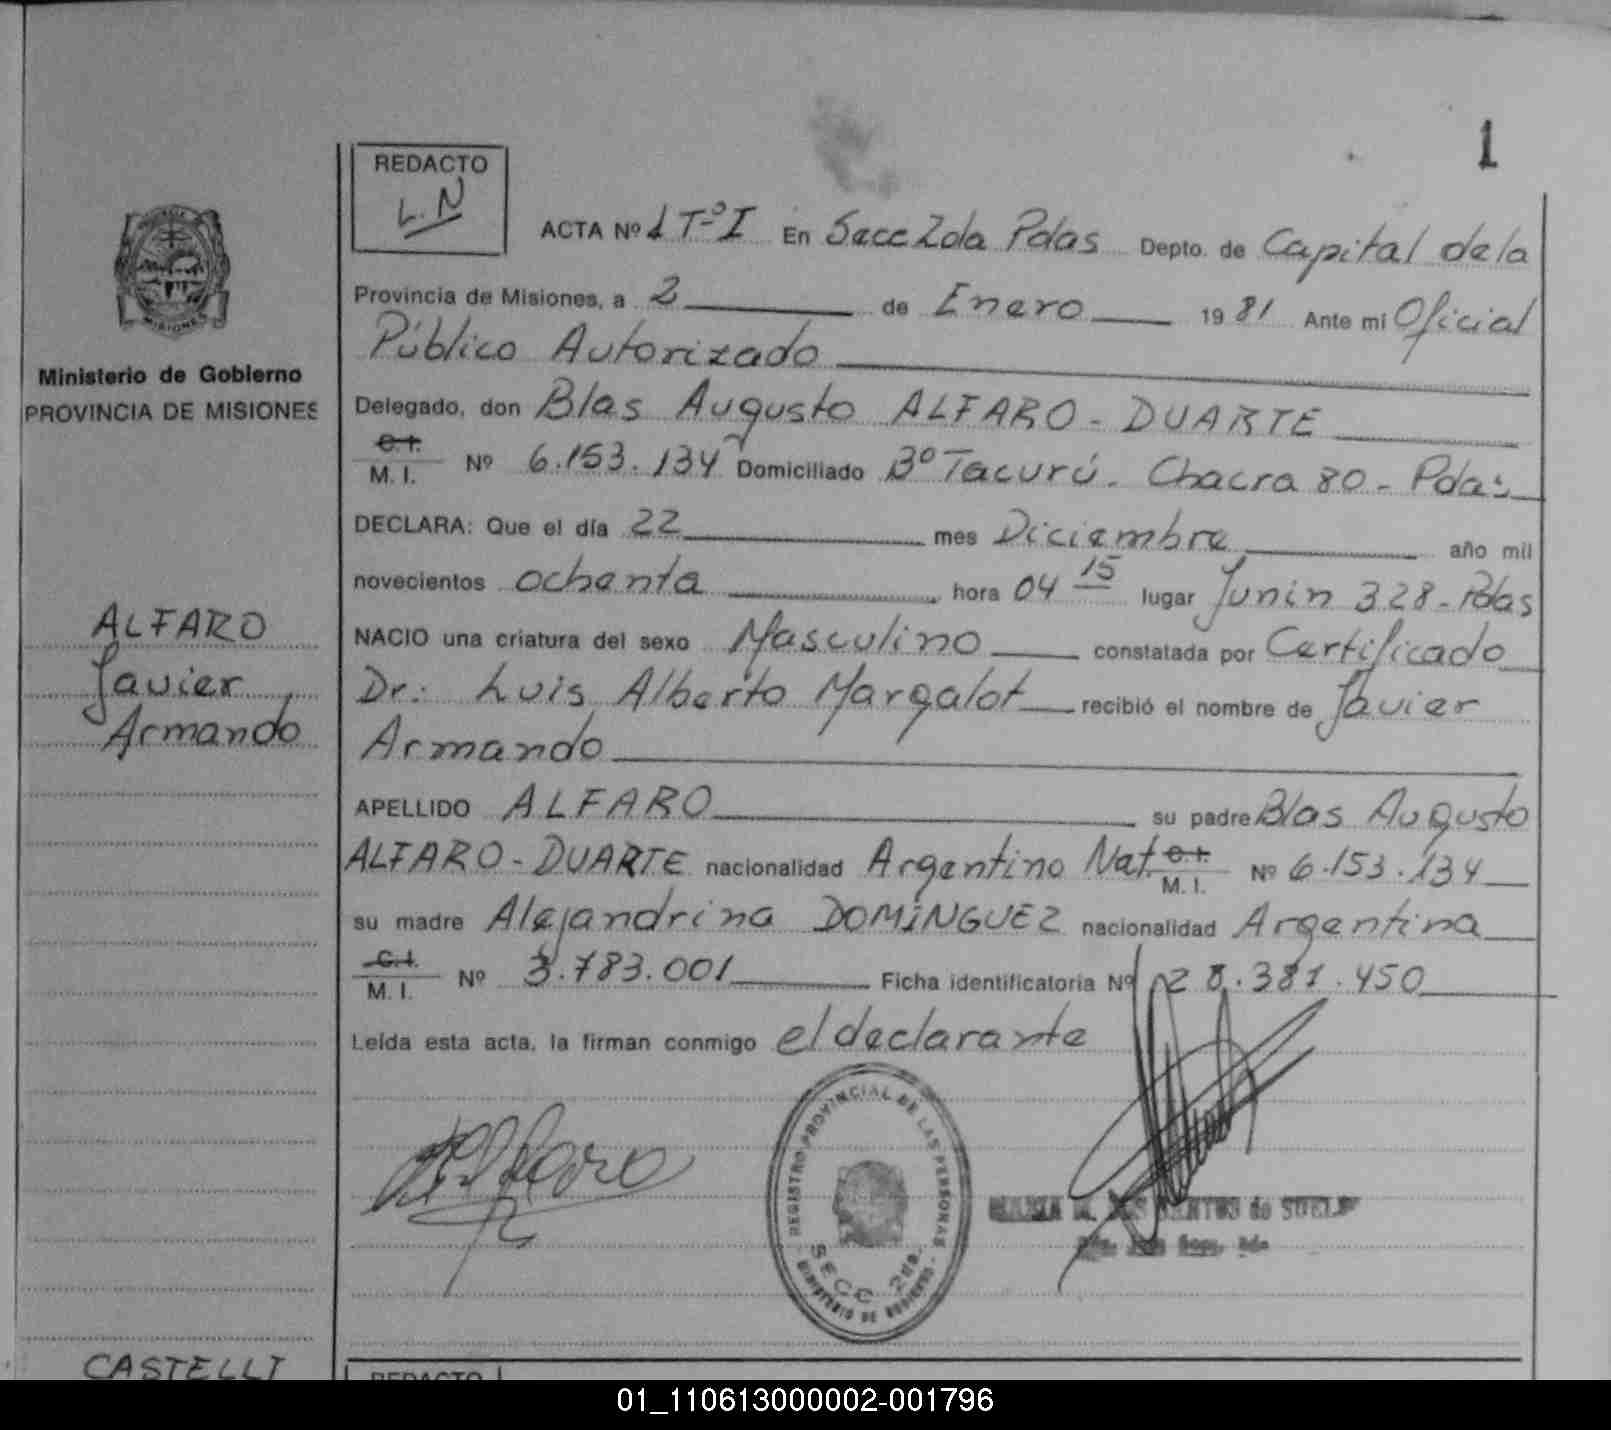 1
REDACTO
L.N
ACTA Nº 1 Tº I En Secc 2da Pdas Depto. de Capital de la
Provincia de Misiones, a 2 de Enero 1981 Ante mi Oficial
Público Autorizado
MISIONES
Ministerio de Gobierno
PROVINCIA DE MISIONES
Delegado, don Blas Augusto ALFARO - DUARTE
C.I.
M. I. Nº 6.153.134 Domiciliado Bº Tacurú. Chacra 80 - Pdas
DECLARA: Que el día 22 mes Diciembre año mil
novecientos ochenta hora 04 15 lugar Junin 328 - Pdas
ALFARO
Javier
Armando
NACIO una criatura del sexo Masculino constatada por Certificado
Dr: Luis Alberto Margalot recibió el nombre de Javier
Armando
APELLIDO ALFARO su padre Blas Augusto
ALFARO - DUARTE nacionalidad Argentino Nat. C.I. M. I. Nº 6.153.134
su madre Alejandrina DOMÍNGUEZ nacionalidad Argentina
C.I.
M. I. Nº 3.783.001 Ficha identificatoria Nº 28.381.450
Leída esta acta, la firman conmigo el declarante
REGISTRO PROVINCIAL DE LAS PERSONAS
SECC 2da.
MINISTERIO DE GOBIERNO
CASTELLI
REDACTO
01_110613000002-001796